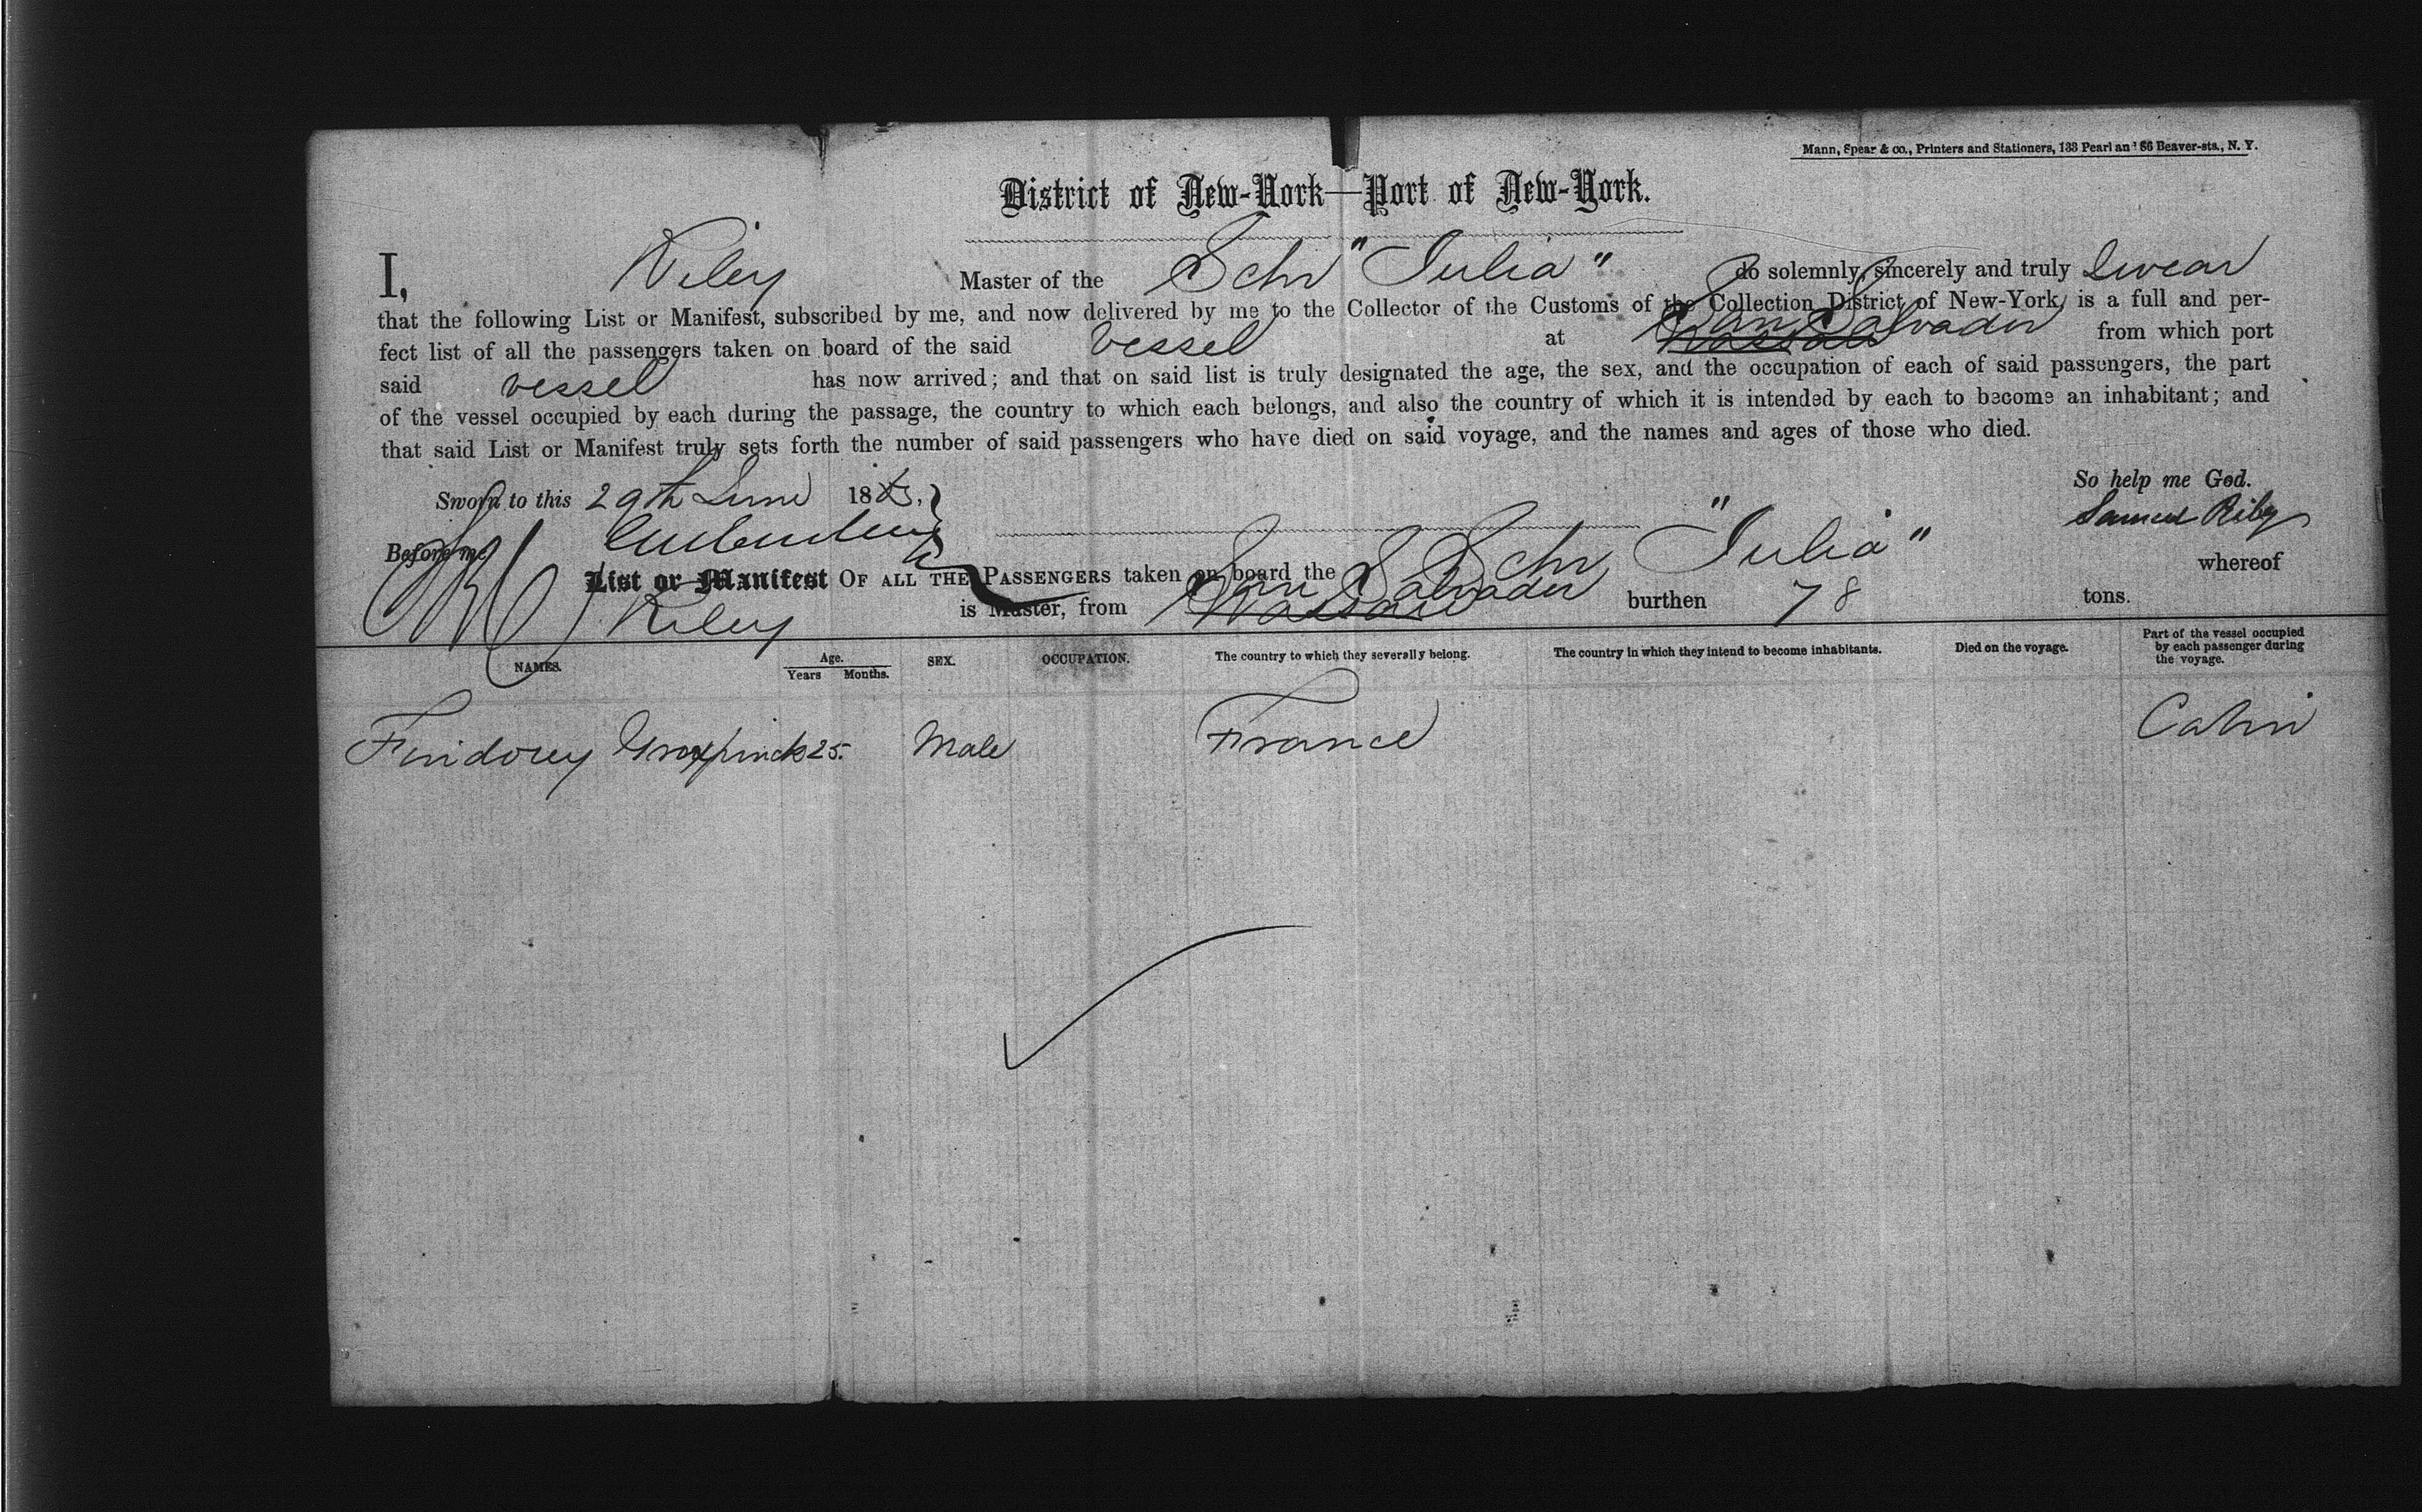 Mann, Spear & co., Printers and Stationers, 133 Pearl an 86 Beaver-sts., N. Y.
District of New-York—Port of New-York.
I, Riley Master of the Schr "Julia" do solemnly, sincerely and truly Swear
that the following List or Manifest, subscribed by me, and now delivered by me to the Collector of the Customs of the Collection District of New-York, is a full and per-
fect list of all the passengers taken on board of the said Vessel at San Salvador from which port
said vessel has now arrived; and that on said list is truly designated the age, the sex, and the occupation of each of said passengers, the part
of the vessel occupied by each during the passage, the country to which each belongs, and also the country of which it is intended by each to become an inhabitant; and
that said List or Manifest truly sets forth the number of said passengers who have died on said voyage, and the names and ages of those who died.
So help me God.
Sworn to this 29th June 18
Samuel Riley
Before me
List or Manifest OF ALL THE PASSENGERS taken on board the Schr "Julia" whereof
Riley is Master, from San Salvador burthen 78 tons.
NAMES. Age. Years Months. SEX. OCCUPATION. The country to which they severally belong. The country in which they intend to become inhabitants. Died on the voyage. Part of the vessel occupied by each passenger during the voyage.
25. Male France Cabin